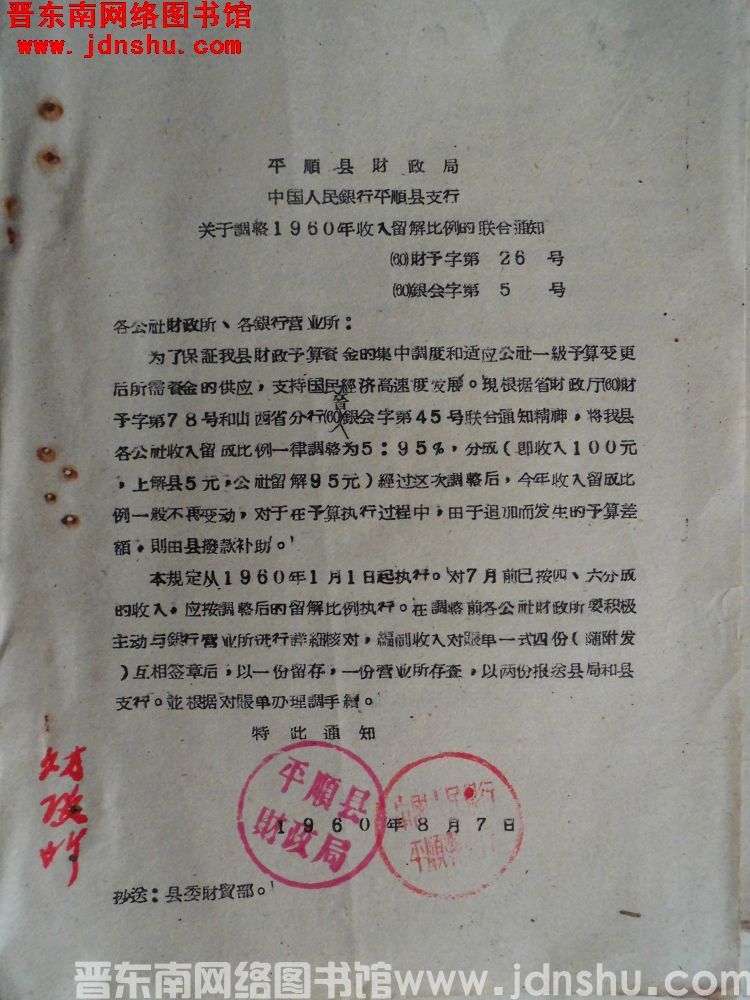 晋东南网络图书馆
www.jdnshu.com
平順县財政局
中国人民銀行平順县支行
关于調整1960年收入留解比例的联合通知
(60)財予字第 26 号
(60)銀会字第 5 号
各公社財政所、各銀行营业所：
为了保証我县財政予算資金的集中調度和适应公社一級予算变更
后所需資金的供应，支持国民經济高速度发展。現根据省財政厅(60)財
晉
予字第78号和山西省分行(60)銀会字第45号联合通知精神，将我县
入
各公社收入留成比例一律調整为5：95%，分成（即收入100元
，上解县5元，公社留解95元）經过这次調整后，今年收入留成比
例一般不再变动，对于在予算执行过程中，由于追加而发生的予算差
額，則由县撥款补助。
本規定从1960年1月1日起执行。对7月前已按四、六分成
的收入，应按調整后的留解比例执行。在調整前各公社財政所要积极
主动与銀行营业所进行詳細核对，編制收入对賬单一式四份（随附发
）互相签章后，以一份留存，一份营业所存查，以两份报送县局和县
支行。並根据对賬单办理調手續。
特此通知
平順县
財政局
中国人民銀行
平順
1960年8月7日
抄送：县委財貿部。
晋东南网络图书馆www.jdnshu.com